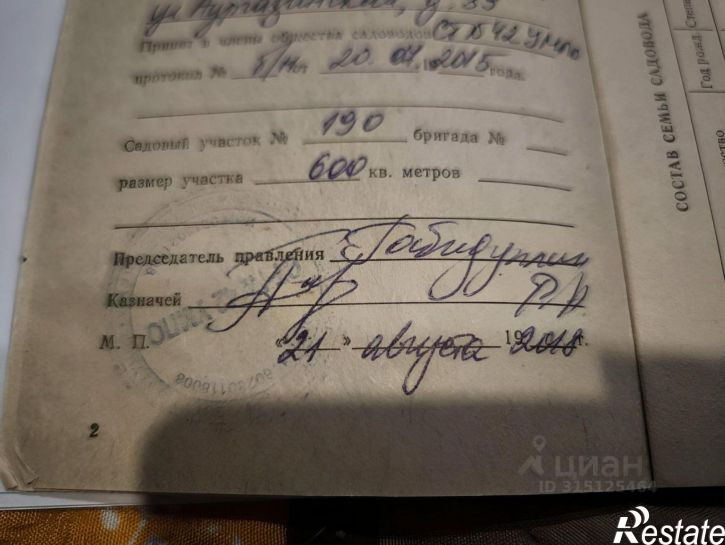 ул Нургазинская, д. 33
Принят в члены общества садоводов СТ №42 УМПО
протокол № б/н от 20.07.2015 года.
Садовый участок № 190 бригада №
размер участка 600 кв. метров
Председатель правления Габидуллин
Казначей
М. П. «21» августа 19 2018 г.
2
СОСТАВ СЕМЬИ САДОВОДА
Год рожд.
циан
ID 315125464
Restate